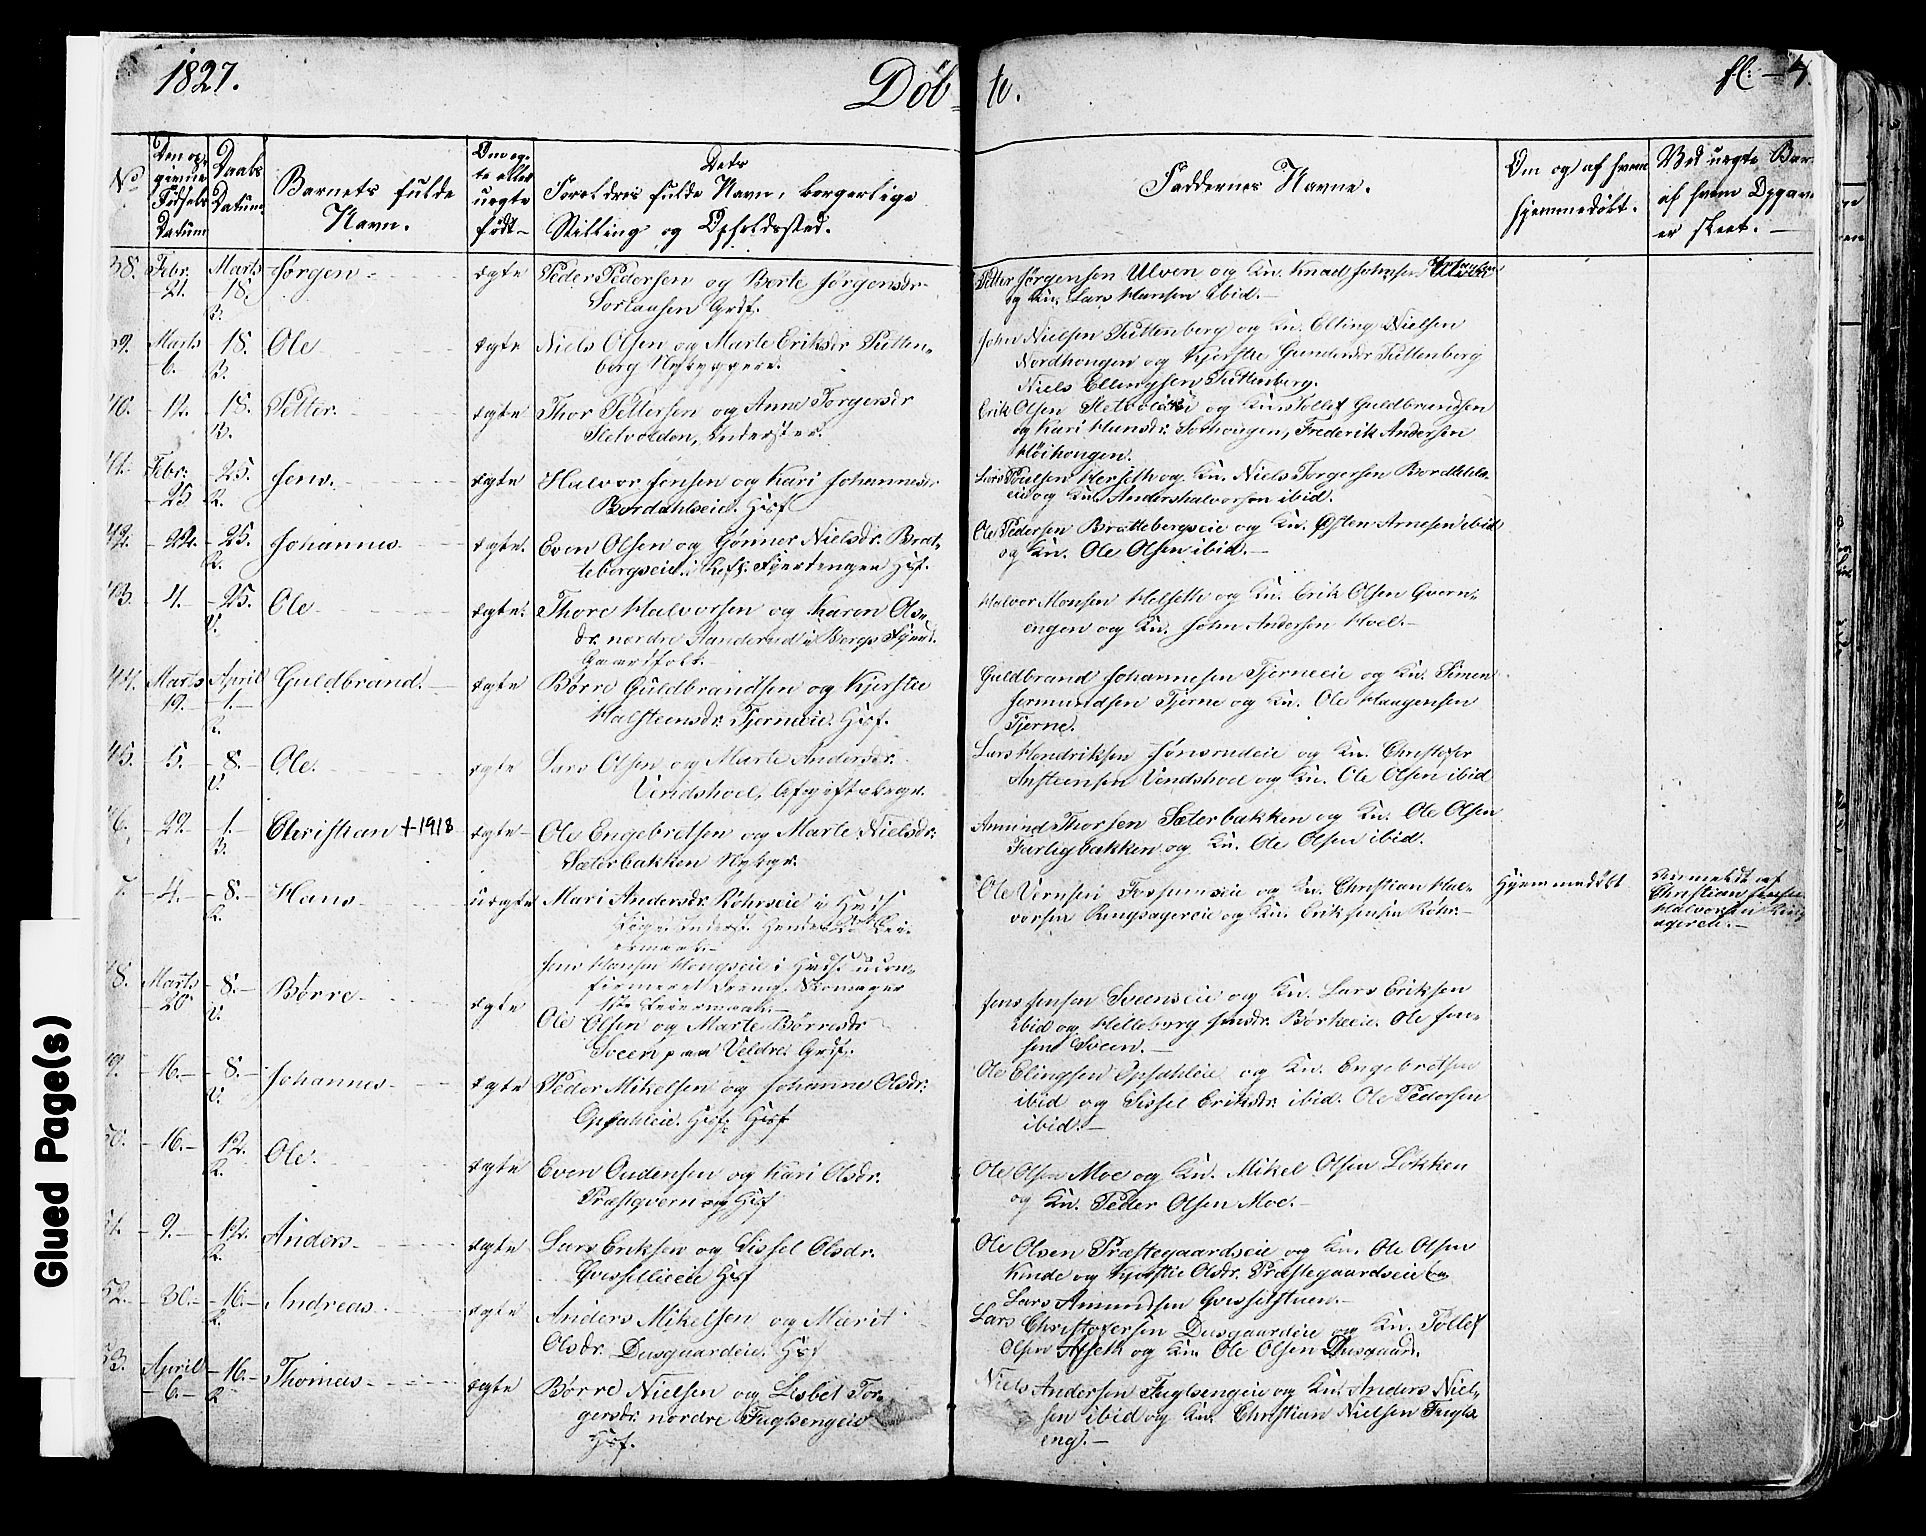 1827.
Döb-
te.
fl: - 4.
No
Den op-
givne
Födsels
Datum
Daabs
Datum.
Barnets fulde
Navn.
Om eg-
te eller
uegte
född-
Dets
Foreldres fulde Navn, borgerlige
Stilling og Opholdssted.
Faddernes Navne.
Om og af hvem
hjemmedöbt.
Ved uegte Bar
af hvem Opgav
er skeet. -
38. Febr. 21. Marts 18. B. Jørgen ægte Peder Pedersen og Berte Jørgensdr
Sorlausen Grdf.
Petter Jørgensen Ulven og Kn. Knud Johnsen
og Kn. Lars Hansen ibid.-
39. Marts 6. 18. B. Ole ægte Niels Olsen og Marte Eriksdr Tutten-
berg Nybyggere.
John Nielsen Tuttenberg og Kn. Elling Nielsen
Nordhougen og Kjerstie Gundersdr Tuttenberg
Niels Ellingsen Tuttenberg.
40. 12. 18. B. Petter. ægte Thor Pettersen og Anne Torgersdr
Sletvolden, Inderster.
Erik Olsen og Kn. Tollef Guldbrandsen
og Kari Hansdr. Sorhougen, Frederik Andersen
Höihougen.
41. Febr. 25 25. R. Jens. ægte Halvor Jensen og Kari Johannesdr
Bordahlseie. Hsf
Lars Poulsen Herseth og Kn. Niels Torgersen Bordahls-
eie og Kn. Anders Halvorsen ibid.
42. 22. 25. R. Johannes ægte. Even Olsen og Gönner Nielsdr. Brat-
tebergseie i Fjerdingen Hsf.
Ole Pedersen Brattebergseie og Kn. Østen Arnesen ibid
og Kn. Ole Olsen ibid.-
43. 4. 25. V. Ole ægte. Thore Halvorsen og Karen Ols-
dr. nordre Sanderud i Bergs Fjerd.
Gaardfolk.-
Halvor Monsen Helseth og Kn. Erik Olsen Gvern-
engen og Kn. John Andersen Hoel.-
44. Marts 19. April 1. R. Guldbrand. ægte Børre Guldbrandsen og Kjerstie
Halsteensdr. Tjerneeie. Hsf.
Guldbrand Johannesen Tjerneeie og Kn. Simen
Jermundsen Tjerne og Kn. Ole Haagensen
Tjerne.
45. 5. 8. V. Ole. ægte Lars Olsen og Marte Andersdr.
Vindshoel,
Lars Hendriksen Jønsrudeie og Kn. Christofer
Austeensen Vendshoel og Kn. Ole Olsen ibid
46. 29. 1. B. Christian +1918 ægte Ole Engebretsen og Marte Nielsdr.
Sæterbakken Nybygr.
Amund Thorsen Sæterbakken og Kn. Ole Olsen
Færligbakken og Kn. Ole Olsen ibid.
7. 4. 8. R. Hans uægte Mari Andersdr. Röhrseie i
Ole Vernsen og Kn. Christian Hal-
vorsen Ringsagereie og Kn. Erik Jensen Röhr.-
Hjemmedöbt
Anmeldt af
Christian Jensen
Halvorsen Ring
agereie.-
Jens Hansen Hougseie i
firmeret Dreng. Skomager
1ste Leiermaal.-
48. Marts 20 8. V. Börre ægte Ole Olsen og Marte Börresdr
Sveen paa Veldre. Grdf.
Jens Jensen Sveenseie og Kn. Lars Eriksen
ibid og Helleborg Jensdr. Börkeeie. Ole Jen-
sen Sveen.-
49. 16. 8. V. Johannes ægte Peder Mikelsen og Johanne Olsdr.
Opsahleie. Hsf. Hsf
Ole Elingsen Opsahleie og Kn. Engebretsen
ibid og Sissel Eriksdr. ibid. Ole Pedersen
ibid.-
50. 16. 12. R. Ole. ægte Even Oudensen og Kari Olsdr.
Præstqvern Hsf
Ole Olsen Moe og Kn. Mikel Olsen Løkken
og Kn. Peder Olsen Moe.-
51. 9. 12. R. Anders ægte Lars Eriksen og Sissel Olsdr.
Hsf
Ole Olsen Præstegaardseie og Kn. Ole Olsen
Kinde og Kjerstie Olsdr. Præstegaardseie og
Lars Amundsen Gresselstuen.-
52. 30. 16. R. Andreas ægte Anders Mikelsen og Marit
Olsdr. Dusgaardeie. Hsf
Lars Christofersen Dusgaardeie og Kn. Tollef
Olsen Afseth og Kn. Ole Olsen Dusgaard.
53. April 6. 16. R Thomas ægte Börre Nielsen og Lisbet Tor-
gersdr. nordre Fuglsengeie
Hsf.
Niels Andersen Fuglsengeie og Kn. Anders Niel-
sen ibid og Kn. Christian Nielsen Fugls
eng.-
Glued Page(s)